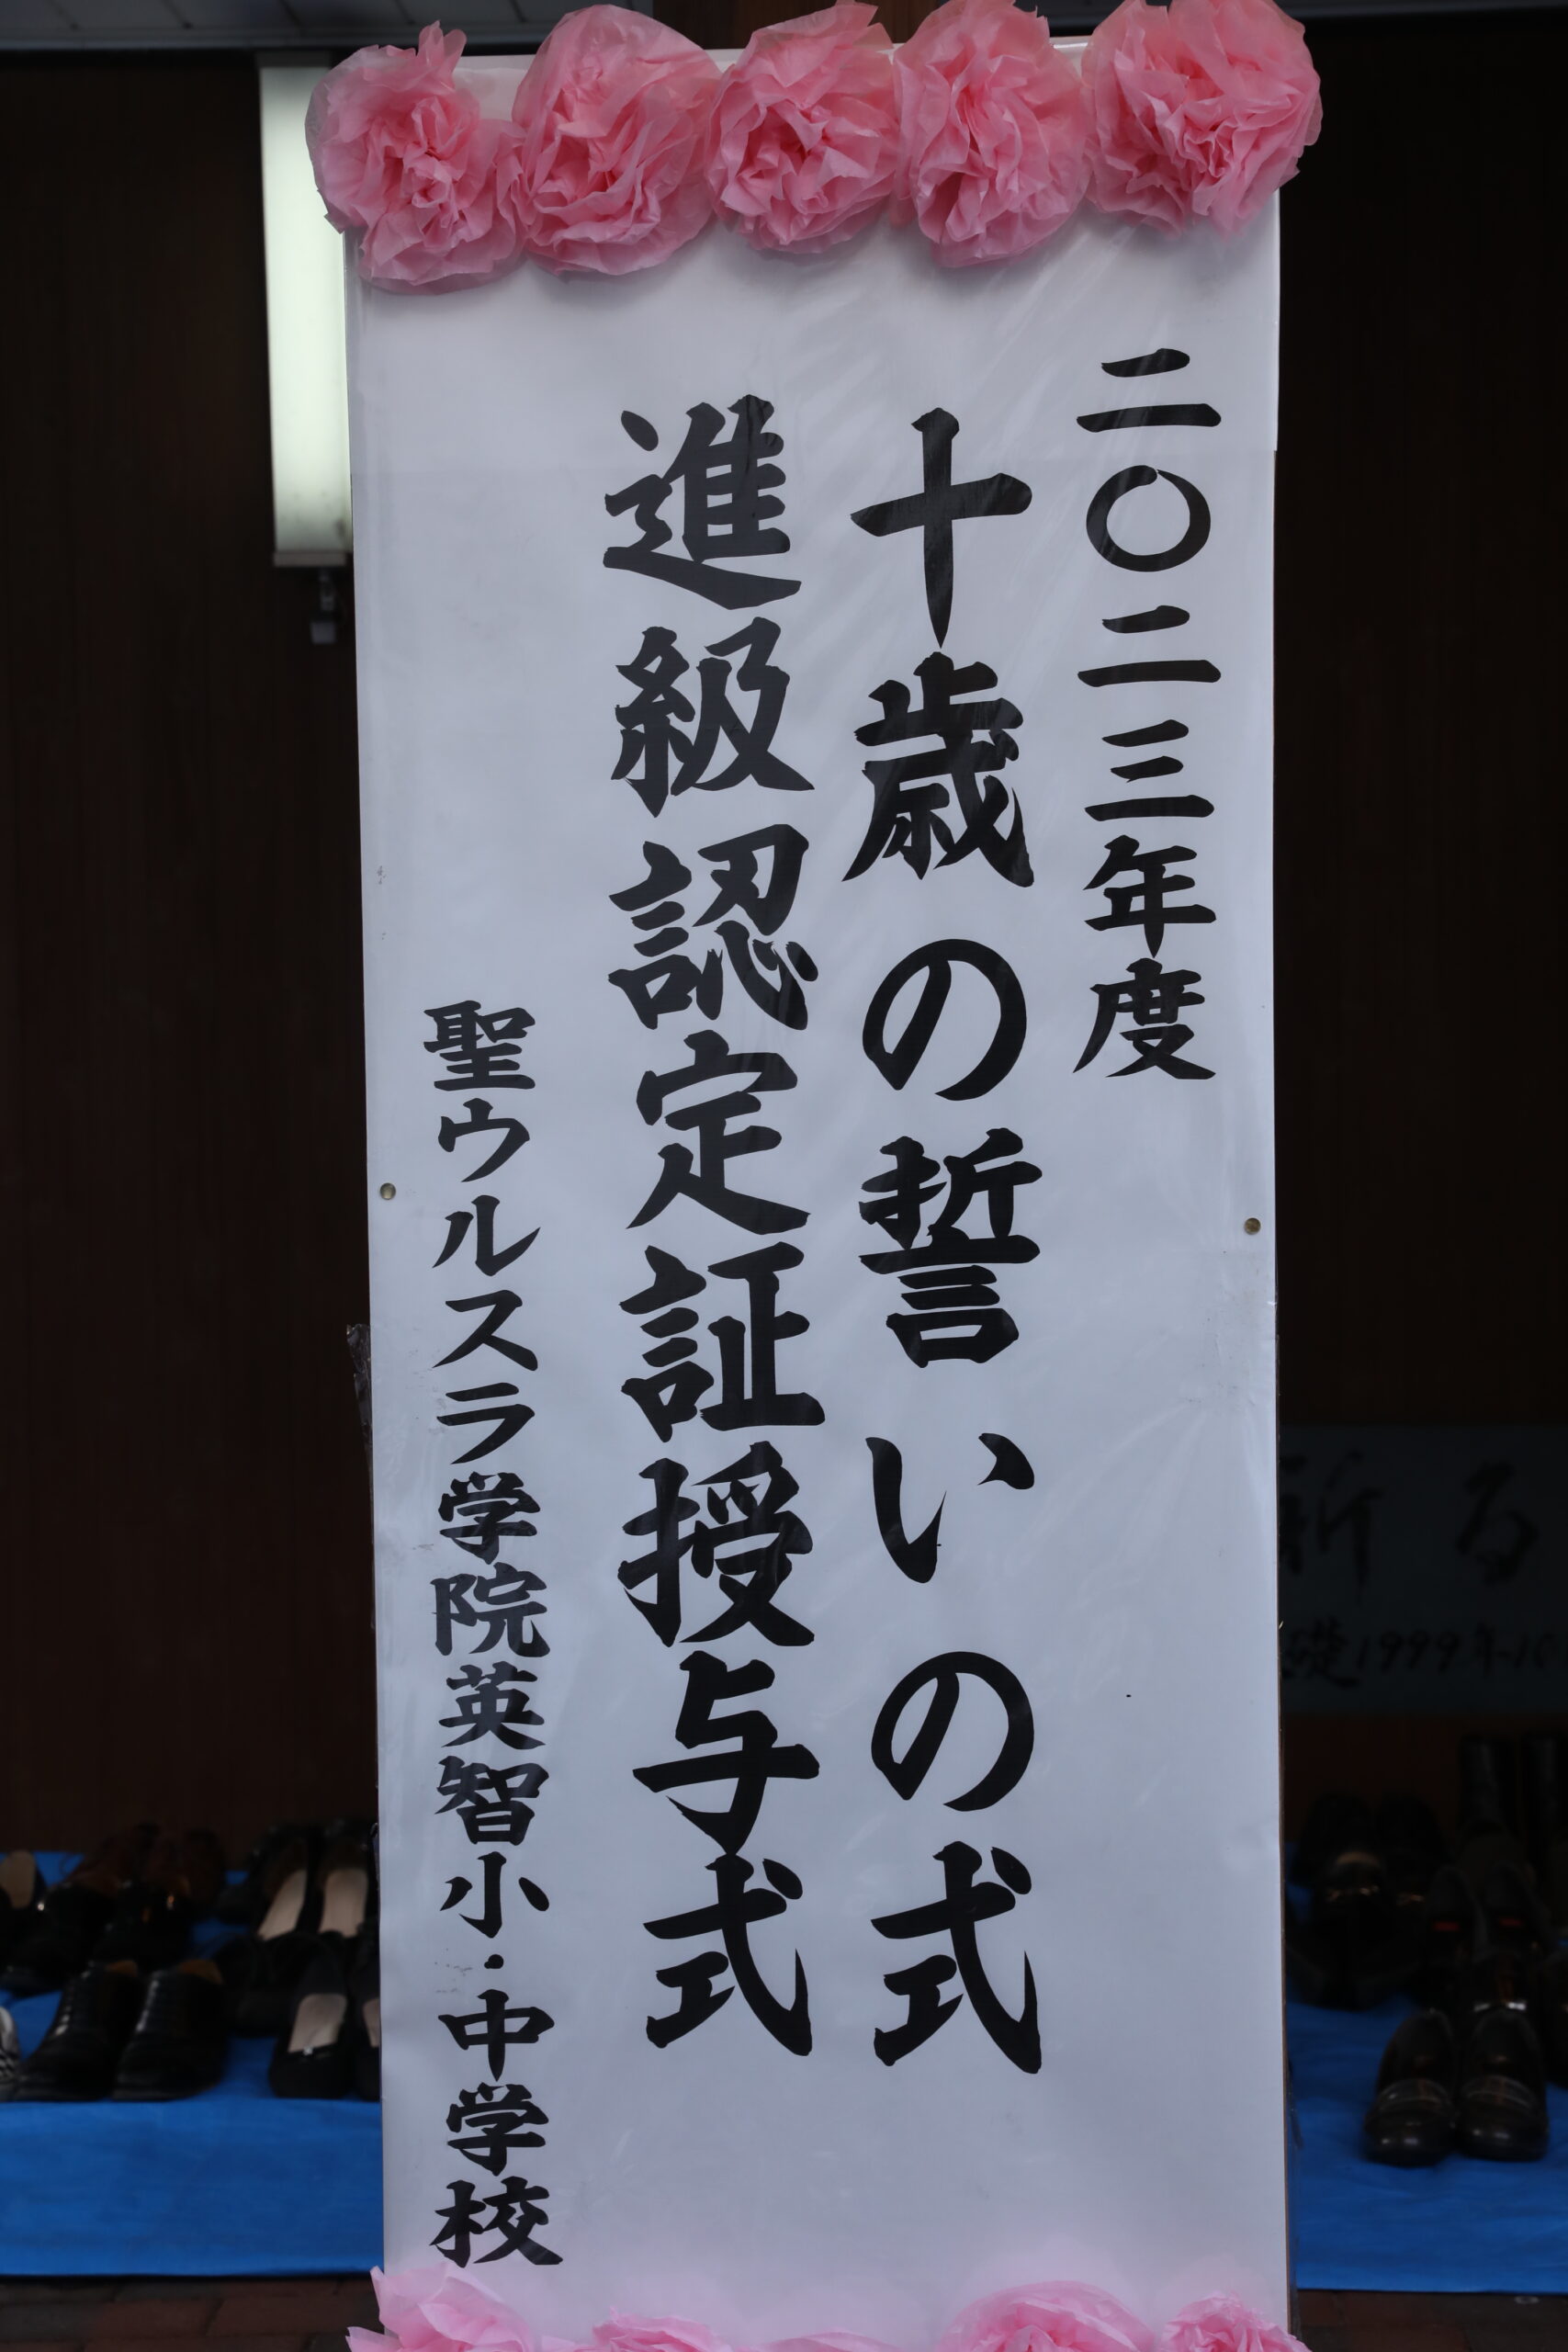 二〇二三年度
十歳の誓いの式
進級認定証授与式
聖ウルスラ学院英智小・中学校
礎1999年10